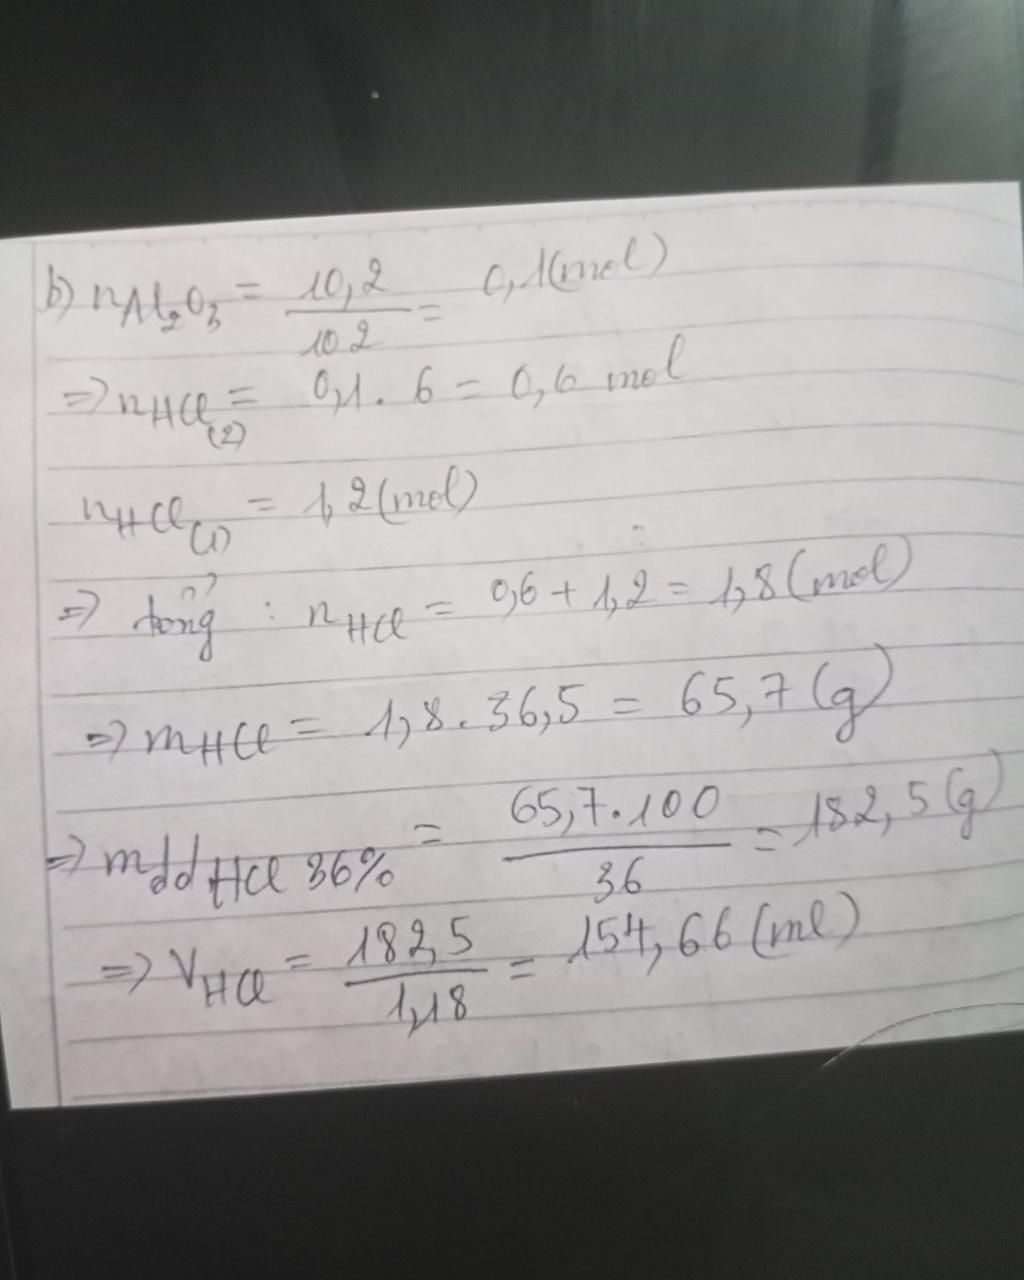 b) nAl₂O₃ = 10,2/102 = 0,1(mol)
=> nHCl(2) = 0,1 . 6 = 0,6 mol
nHCl(1) = 1,2(mol)
=> tổng : nHCl = 0,6 + 1,2 = 1,8(mol)
=> mHCl = 1,8 . 36,5 = 65,7(g)
=> mddHCl 36% = 65,7.100/36 = 182,5(g)
=> VHCl = 182,5/1,18 = 154,66(ml)